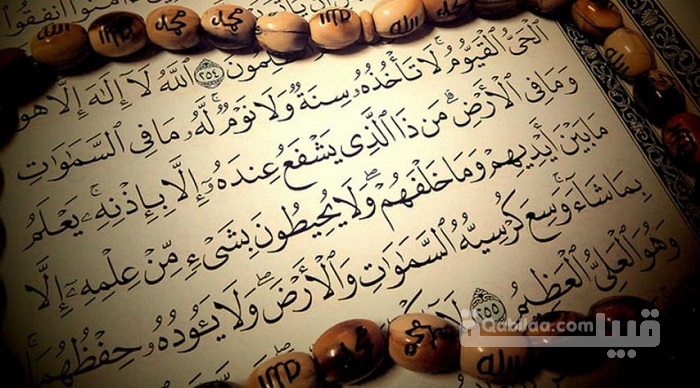 ٱلظَّٰلِمُونَ ٢٥٤ ٱللَّهُ لَآ إِلَٰهَ إِلَّا هُوَ
ٱلۡحَىُّ ٱلۡقَيُّومُۚ لَا تَأۡخُذُهُۥ سِنَةٌ وَلَا نَوۡمٌۚ لَّهُۥ مَا فِى ٱلسَّمَٰوَٰتِ
وَمَا فِى ٱلۡأَرۡضِۗ مَن ذَا ٱلَّذِى يَشۡفَعُ عِندَهُۥٓ إِلَّا بِإِذۡنِهِۦۚ يَعۡلَمُ
مَا بَيۡنَ أَيۡدِيهِمۡ وَمَا خَلۡفَهُمۡۖ وَلَا يُحِيطُونَ بِشَىۡءٍ مِّنۡ عِلۡمِهِۦٓ إِلَّا
بِمَا شَآءَۚ وَسِعَ كُرۡسِيُّهُ ٱلسَّمَٰوَٰتِ وَٱلۡأَرۡضَۖ وَلَا يَـُٔودُهُۥ حِفۡظُهُمَاۚ
وَهُوَ ٱلۡعَلِىُّ ٱلۡعَظِيمُ ٢٥٥ لَآ
الله
محمد
الله
محمد
محمد
الله
محمد
الله
قبيلة
Qabilaa.com